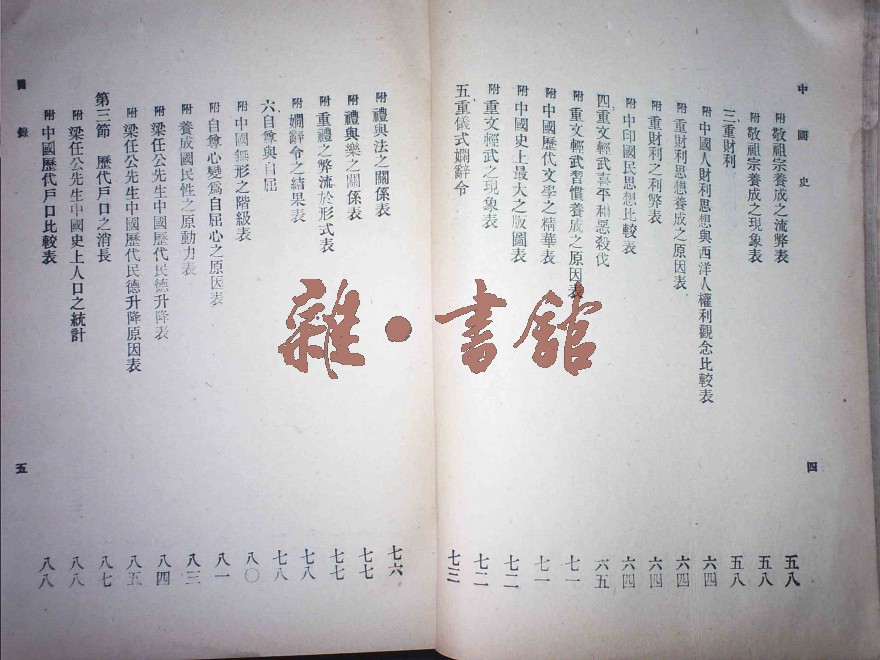 中國史
四
附 敬祖宗養成之流弊表 五八
附 敬祖宗養成之現象表 五八
三 重財利 五八
附 中國人財利思想與西洋人權利觀念比較表 六四
附 重財利思想養成之原因表 六四
附 重財利之利弊表 六四
附 中印國民思想比較表 六四
四 重文輕武喜平和惡殺伐 六五
附 重文輕武習慣養成之原因表 七一
附 中國歷代文學之精華表 七一
附 中國史上最大之版圖表 七二
附 重文輕武之現象表 七二
五 重儀式嫻辭令 七三
附 禮與法之關係表 七六
附 禮與樂之關係表 七七
附 重禮之弊流於形式表 七七
附 嫻辭令之結果表 七八
六 自尊與自屈 七八
附 中國無形之階級表 八〇
附 自尊心變爲自屈心之原因表 八一
附 養成國民性之原動力表 八三
附 梁任公先生中國歷代民德升降表 八四
附 梁任公先生中國歷代民德升降原因表 八五
第三節 歷代戶口之消長 八七
附 梁任公先生中國史上人口之統計 八八
附 中國歷代戶口比較表 八八
目錄
五
雜·書館